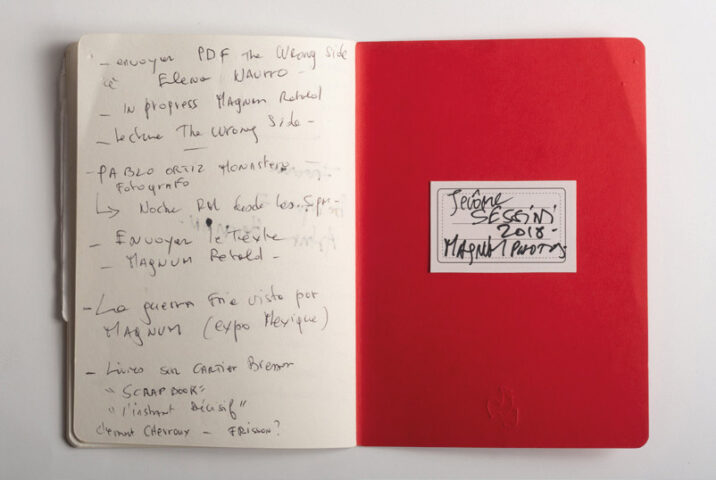 - envoyer PDF The Wrong Side
à Elena NAVITO -
- in progress Magnum Retold
- Lecture The Wrong Side -
- PABLO ORTIZ MONASTERIO
FOTOGRAFO
↳ Noche Rul desde los
- ENVOYER le Texte
- MAGNUM Retold -
- La guerra fria visto por
MAGNUM (expo Mexique)
- Livres sur CARTIER Bresson
"SCRAPBOOK"
"l'instant Décisif"
Clément CHEROUX - FRISSON?
Jérôme
SESSINI
2018 -
MAGNUM PHOTOS